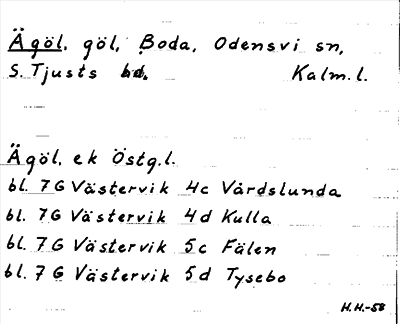 Ägöl, göl, Boda, Odensvi sn,
S. Tjusts hd. Kalm. l.
Ägöl, ek Östg. l.
bl. 7G Västervik 4c Vårdslunda
bl. 7G Västervik 4d Kulla
bl. 7G Västervik 5c Fälen
bl. 7G Västervik 5d Tysebo
H.H.-58